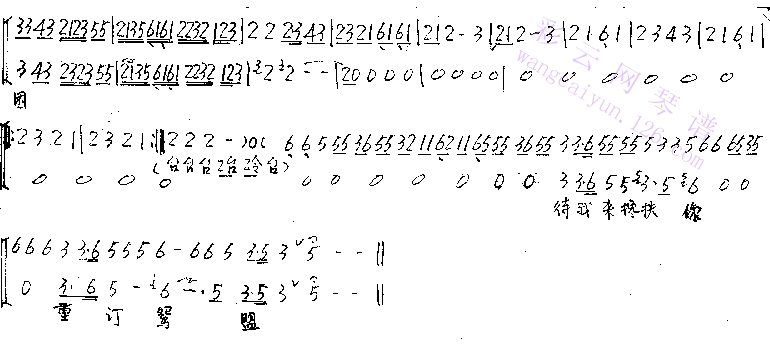 3343 212355 | 21356161 2232 123 | 2 2 2343 | 23216161 | 212-3 | 212-3 | 2161 | 2343 | 2161 |
343 232355 | 21356161 2232 123 | 2 2 -- | 20 0 0 0 | 0 0 0 0 | 0 0 0 0 0 0 0
团
2321 | 2321 | 222- )0( 6 6 5 55 3655 32116211 6555 3655 3 3·6 5555 5 3 3 5 6 6 6535
(台台台 台 冷台)
0 0 0 0 0 0 0 0 0 0 0 3 3·6 5 5 3·5 6 0 0
待我来搀扶 你
666 3 3·6 5 5 5 6 - 6 6 5 3·5 3 5 - - ||
0 3·6 5 - 6 - ·5 3·5 3 5 - - ||
重 订 鸳 盟
彩云网琴谱
wangcaiyun.126.com